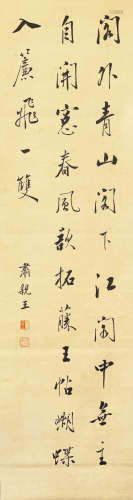 閣外青山閣下江閣中無主
自開窗春風歌拓藤王帖蝴蝶
入簾飛一雙
肅親王